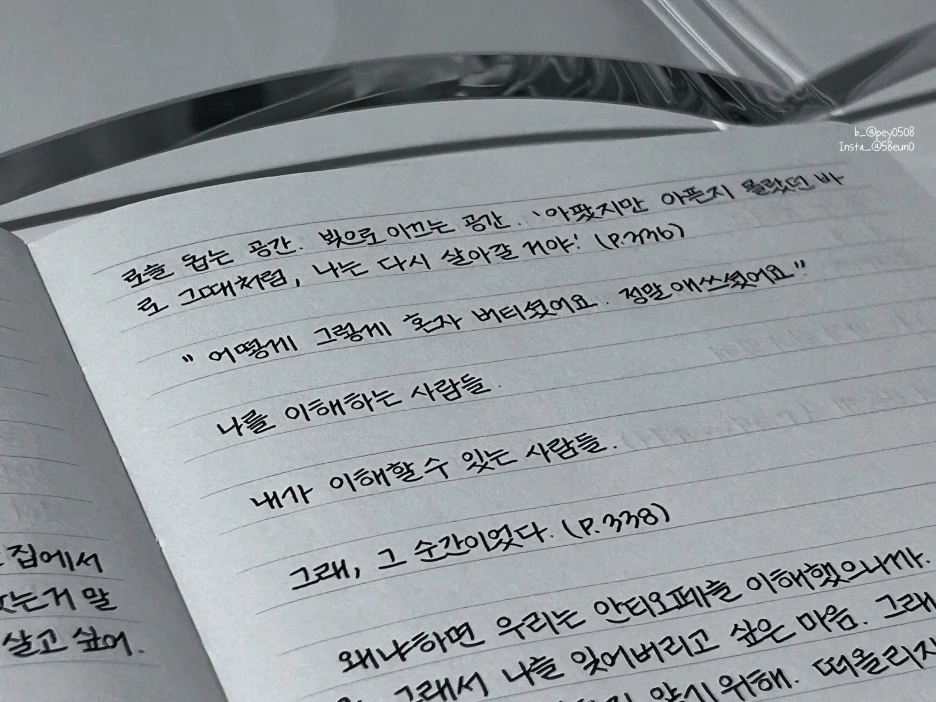 b_@pey0508
Insta_@58eun0
로를 돕는 공간. 빛으로 이끄는 공간. '아팠지만 아픈지 몰랐던 바
로 그때처럼, 나는 다시 살아갈 거야!' (P.336)
"어떻게 그렇게 혼자 버티셨어요. 정말 애쓰셨어요"
나를 이해하는 사람들.
내가 이해할 수 있는 사람들.
그래, 그 순간이었다. (P.338)
왜냐하면 우리는 안티오페를 이해했으니까.
그래서 나를 잊어버리고 싶은 마음. 그래
않기 위해. 떠올리지
집에서
는거 말
살고 싶어.